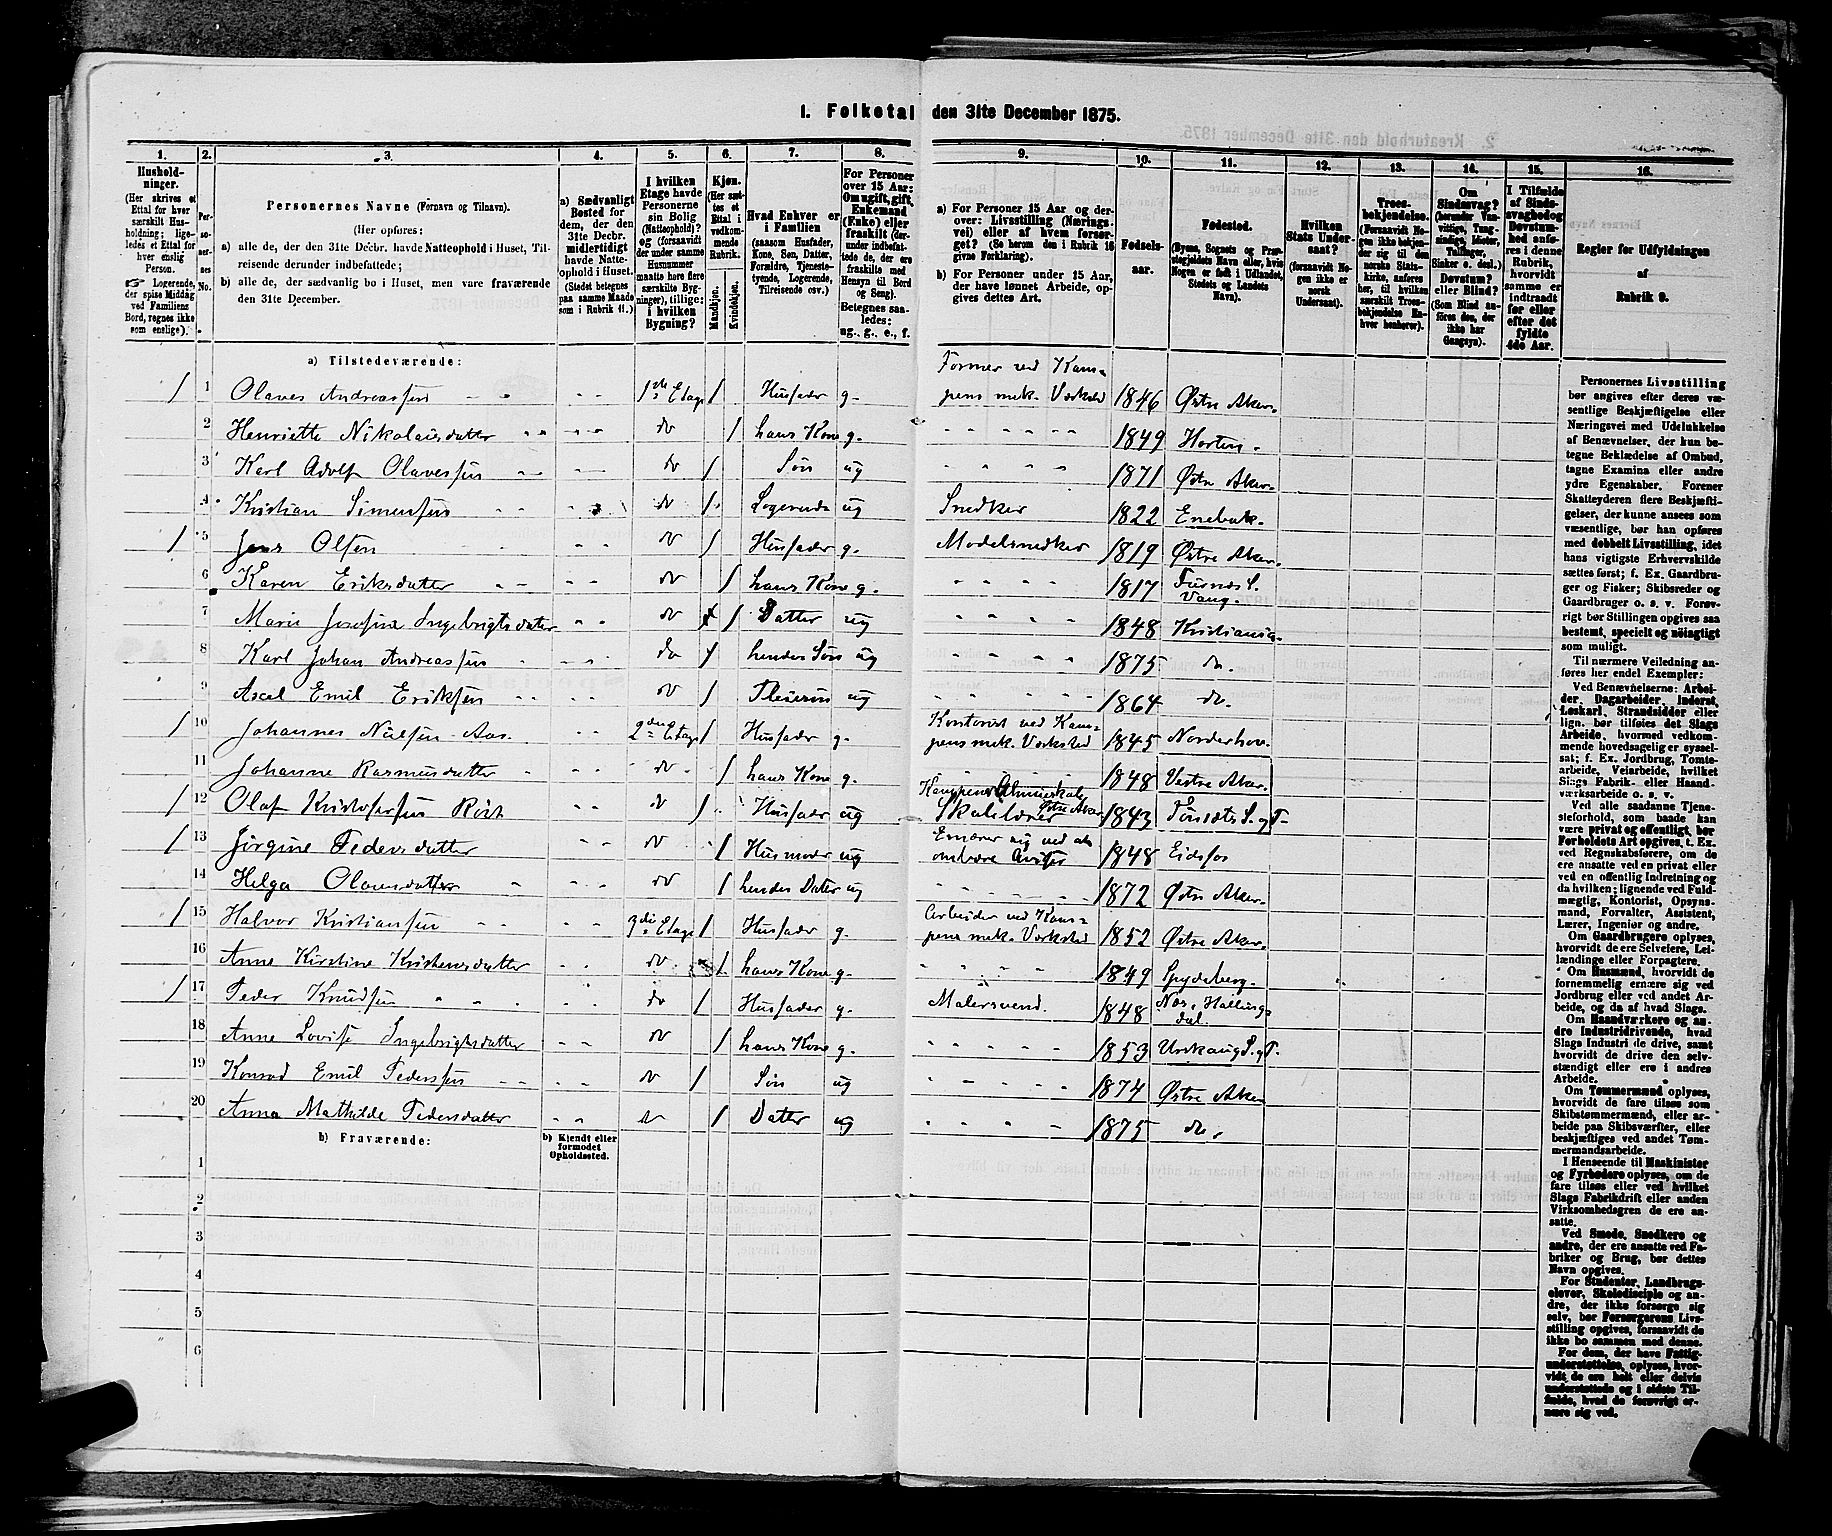 1. Folketal den 31te December 1875.
1. 2. 3. 4. 5. 6. 7. 8. 9. 10. 11. 12. 13. 14. 15. 16.
Hushold-
ninger.
(Her skrives et
Ettal for hver
særskilt Hus-
holdning; lige-
ledes et Ettal for
hver enslig
Person.
☞ Logerende,
der spise Middag
ved Familiens
Bord, regnes ikke
som enslige).
Per-
so-
ner-
nes
No.
Personernes Navne (Fornavn og Tilnavn).
(Her opføres:
a) alle de, der den 31te Decbr. havde Natteophold i Huset, Til-
reisende derunder indbefattede;
b) alle de, der sædvanlig bo i Huset, men vare fraværende
den 31te December.
a) Sædvanligt
Bosted for
dem, der den
31te Decbr.
midlertidigt
havde Natte-
ophold i Huset.
(Stedet betegnes
paa samme Maade
som i Rubrik 11.)
I hvilken
Etage havde
Personerne
sin Bolig
(Natteophold)?
og (forsaavidt
der under samme
Husnummer
maatte høre flere
særskilte Byg-
ninger), tillige:
i hvilken
Bygning?
Kjøn.
(Her sæt-
tes et
Ettal i
vedkom-
mende
Rubrik.
Mandkjøn.
Kvindekjøn.
Hvad Enhver er
i Familien
(saasom Husfader,
Kone, Søn, Datter,
Forældre, Tjeneste-
tyende, Logerende,
Tilreisende osv.)
For Personer
over 15 Aar:
Om ugift, gift,
Enkemand
(Enke) eller
fraskilt (der-
under indbefat-
tede de, der ere
fraskilte med
Hensyn til Bord
og Seng).
Betegnes saa-
ledes:
ug., g., e., f.
a) For Personer 15 Aar og der-
over: Livsstilling (Nærings-
vei) eller af hvem forsør-
get? (Se herom den i Rubrik 16
givne Forklaring).
b) For Personer under 15 Aar,
der have lønnet Arbeide, op-
gives dettes Art.
Fødsels-
aar.
Fødested.
(Byens, Sognets og Præ-
stegjeldets Navn eller, hvis
Nogen er født i Udlandet,
Stedets og Landets
Navn).
Hvilken
Stats Under-
saat?
(forsaavidt No-
gen ikke er
norsk
Undersaat).
Troes-
bekjendelse.
(Forsaavidt No-
gen ikke bekjen-
der sig til den
norske Stats-
kirke, anføres
her, til hvilken
særskilt Troes-
bekjendelse En-
hver henhører).
Om
Sindssvag?
(herunder Van-
vittige, Tung-
sindige, Idioter,
Tullinger,
Sinker o. desl.)
Døvstum?
eller Blind?
(Som Blind an-
føres den, der
ikke har
Gangsyn).
I Tilfælde
af Sinds-
svaghed og
Døvstum-
hed anfø-
res i denne
Rubrik,
hvorvidt
samme er
indtraadt
før eller
efter det
fyldte
4de Aar.
Regler for Udfyldningen
af
Rubrik 9.
a) Tilstedeværende:
1 1 Olaves Andreassen 1ste Etage 1 Husfader g. Former ved Kam-
pens mek. Værksted 1846 Østre Aker.
2 Henriette Nikolaisdatter do 1 hans Kone g. 1849 Horten.
3 Karl Adolf Olavessen do 1 Søn ug 1871 Østre Aker.
4 Kristian Simensen do 1 Logerende ug Snedker 1822 Enebak.
1 5 Jens Olsen do 1 Husfader g. Modelsnedker 1819 Østre Aker.
6 Karen Eriksdatter do 1 hans Kone g. 1817 Furnæs S.
Vang.
7 Marie Josefine Ingebrigtsdatter do 1 Datter ug 1848 Kristiania.
8 Karl Johan Andreassen do 1 hendes Søn ug 1875 do.
9 Axel Emil Eriksen do 1 Pleiesøn ug 1864 do.
1 10 Johannes Nielsen Aas. 2den Etage 1 Husfader g. Kontorist ved Kam-
pens mek. Værksted 1845 Norderhov.
11 Johanne Rasmusdatter do 1 hans Kone g. 1848 Vestre Aker.
1 12 Olaf Kristofersen Röst do 1 Husfader ug Kampens Almueskole
Østre Aker Skolelærer 1843 Tönsæts S. og P.
1 13 Jörgine Pedersdatter do 1 Husmoder ug Ernærer sig ved at
ombære Aviser 1848 Eidsfos
14 Helga Olavesdatter do 1 hendes Dater ug 1872 Østre Aker.
1 15 Halvor Kristiansen 3die Etage 1 Husfader g. Arbeider ved Kam-
pens mek. Værksted 1852 Østre Aker.
16 Anne Kirstine Kristensdatter do 1 hans Kone g. 1849 Spydeberg.
1 17 Peder Knudsen do 1 Husfader g. Malersvend. 1848 Næs, Halling-
dal.
18 Anne Lovise Ingebrigtsdatter do 1 hans Kone g. 1853 Urskoug S. og P.
19 Konrad Emil Pedersen do 1 Søn ug 1874 Østre Aker
20 Anna Mathilde Pedersdatter do 1 Datter ug 1875 do.
b) Fraværende:
b) Kjendt eller
formodet
Opholdssted.
1
2
3
4
5
6
Personernes Livsstilling
bør angives efter deres væ-
sentlige Beskjæftigelse eller
Næringsvei med Udelukkelse
af Benævnelser, der kun be-
tegne Beklædelse af Ombud,
tagne Examina eller andre
ydre Egenskaber. Forener
Skatteyderen flere Beskjæfti-
gelser, der kunne ansees som
væsentlige, bør han opføres
med dobbelt Livsstilling, idet
hans vigtigste Erhvervskilde
sættes først; f. Ex. Gaardbru-
ger og Fisker; Skibsreder og
Gaardbruger o. s. v. Forøv-
rigt bør Stillingen opgives saa
bestemt, specielt og nøiagtigt
som muligt.
Til nærmere Veiledning an-
føres her endel Exempler:
Ved Benævnelserne: Arbei-
der, Dagarbeider, Inderst,
Løskarl, Strandsidder eller
lign. bør tilføies det Slags
Arbeide, hvormed vedkom-
mende hovedsagelig er syssel-
sat; f. Ex. Jordbrug, Tomte-
arbeide, Veiarbeide, hvilket
Slags Fabrik- eller Haand-
værksarbeide o. s. v.
Ved alle saadanne Tjene-
steforhold, som baade kan
være privat og offentligt, bør
Forholdets Art opgives, t. Ex.
ved Regnskabsførere, om de
ere ansatte ved en privat eller
ved en offentlig Indretning og
da hvilken; lignende ved Fuld-
mægtig, Kontorist, Opsyns-
mand, Forvalter, Assistent,
Lærer, Ingeniør og andre.
Om Gaardbrugere oplyses,
hvorvidt de ere Selveiere, Lei-
lændinge eller Forpagtere.
Om Husmænd, hvorvidt de
fornemmelig ernære sig ved
Jordbrug eller ved andet Ar-
beide, og da af hvad Slags.
Om Haandværkere og an-
dre Industridrivende, hvad
Slags Industri de drive, samt
hvorvidt de drive den selv-
stændigt eller ere i andres
Arbeide.
Om Tømmermænd oplyses,
hvorvidt de fare tilsøs som
Skibstømmermænd, eller ar-
beide paa Skibsværfter, eller
beskjæftiges ved andet Tøm-
mermandsarbeide.
I Henseende til Maskinister
og Fyrbødere oplyses, om de
fare tilsøs eller ved hvilket
Slags Fabrikdrift eller anden
Virksomhedsgren de ere an-
satte.
Ved Smede, Snedkere og
andre, der ere ansatte ved Fa-
briker og Brug, bør dettes
Navn opgives.
For Studenter, Landbrugs-
elever, Skoledisciple og an-
dre, der ikke forsørge sig
selv, bør Forsørgerens Livs-
stilling opgives, forsaavidt de
ikke bo sammen med denne.
For dem, der have Fattig-
understøttelse, oplyses, hvor-
vidt de ere helt eller delvis
understøttede og i sidste Til-
fælde, hvad de forøvrigt er-
nære sig ved.